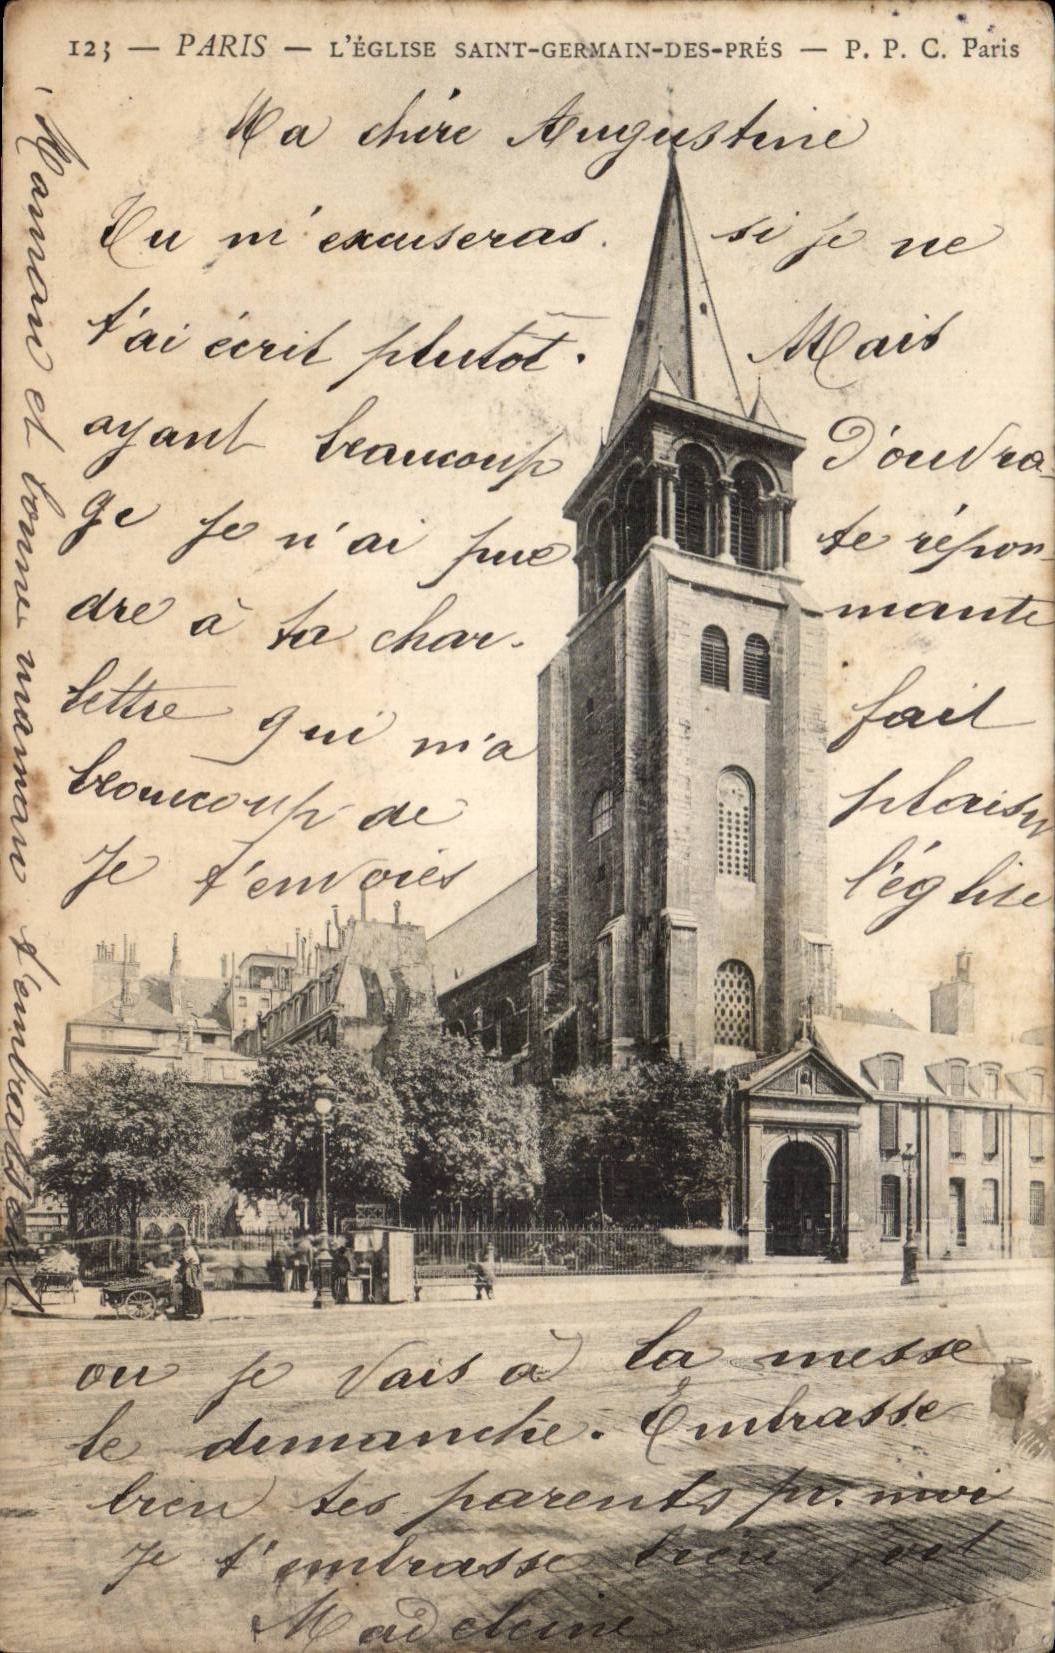 123 — PARIS — L'ÉGLISE SAINT-GERMAIN-DES-PRÉS — P. P. C. Paris
Ma chère Augustine
Tu m'excuseras. si je ne
t'ai écrit plutôt. Mais
ayant beaucoup d'ouvra-
ge je n'ai pue te répon-
dre à ta char- mante
lettre qui m'a fait
beaucoup de plaisir
Je t'envoies l'église
ou je vais à la messe
le dimanche. Embrasse
bien tes parents pr. moi
Je t'embrasse bien fort
Madeleine
Maman et bonne maman t'embrassent